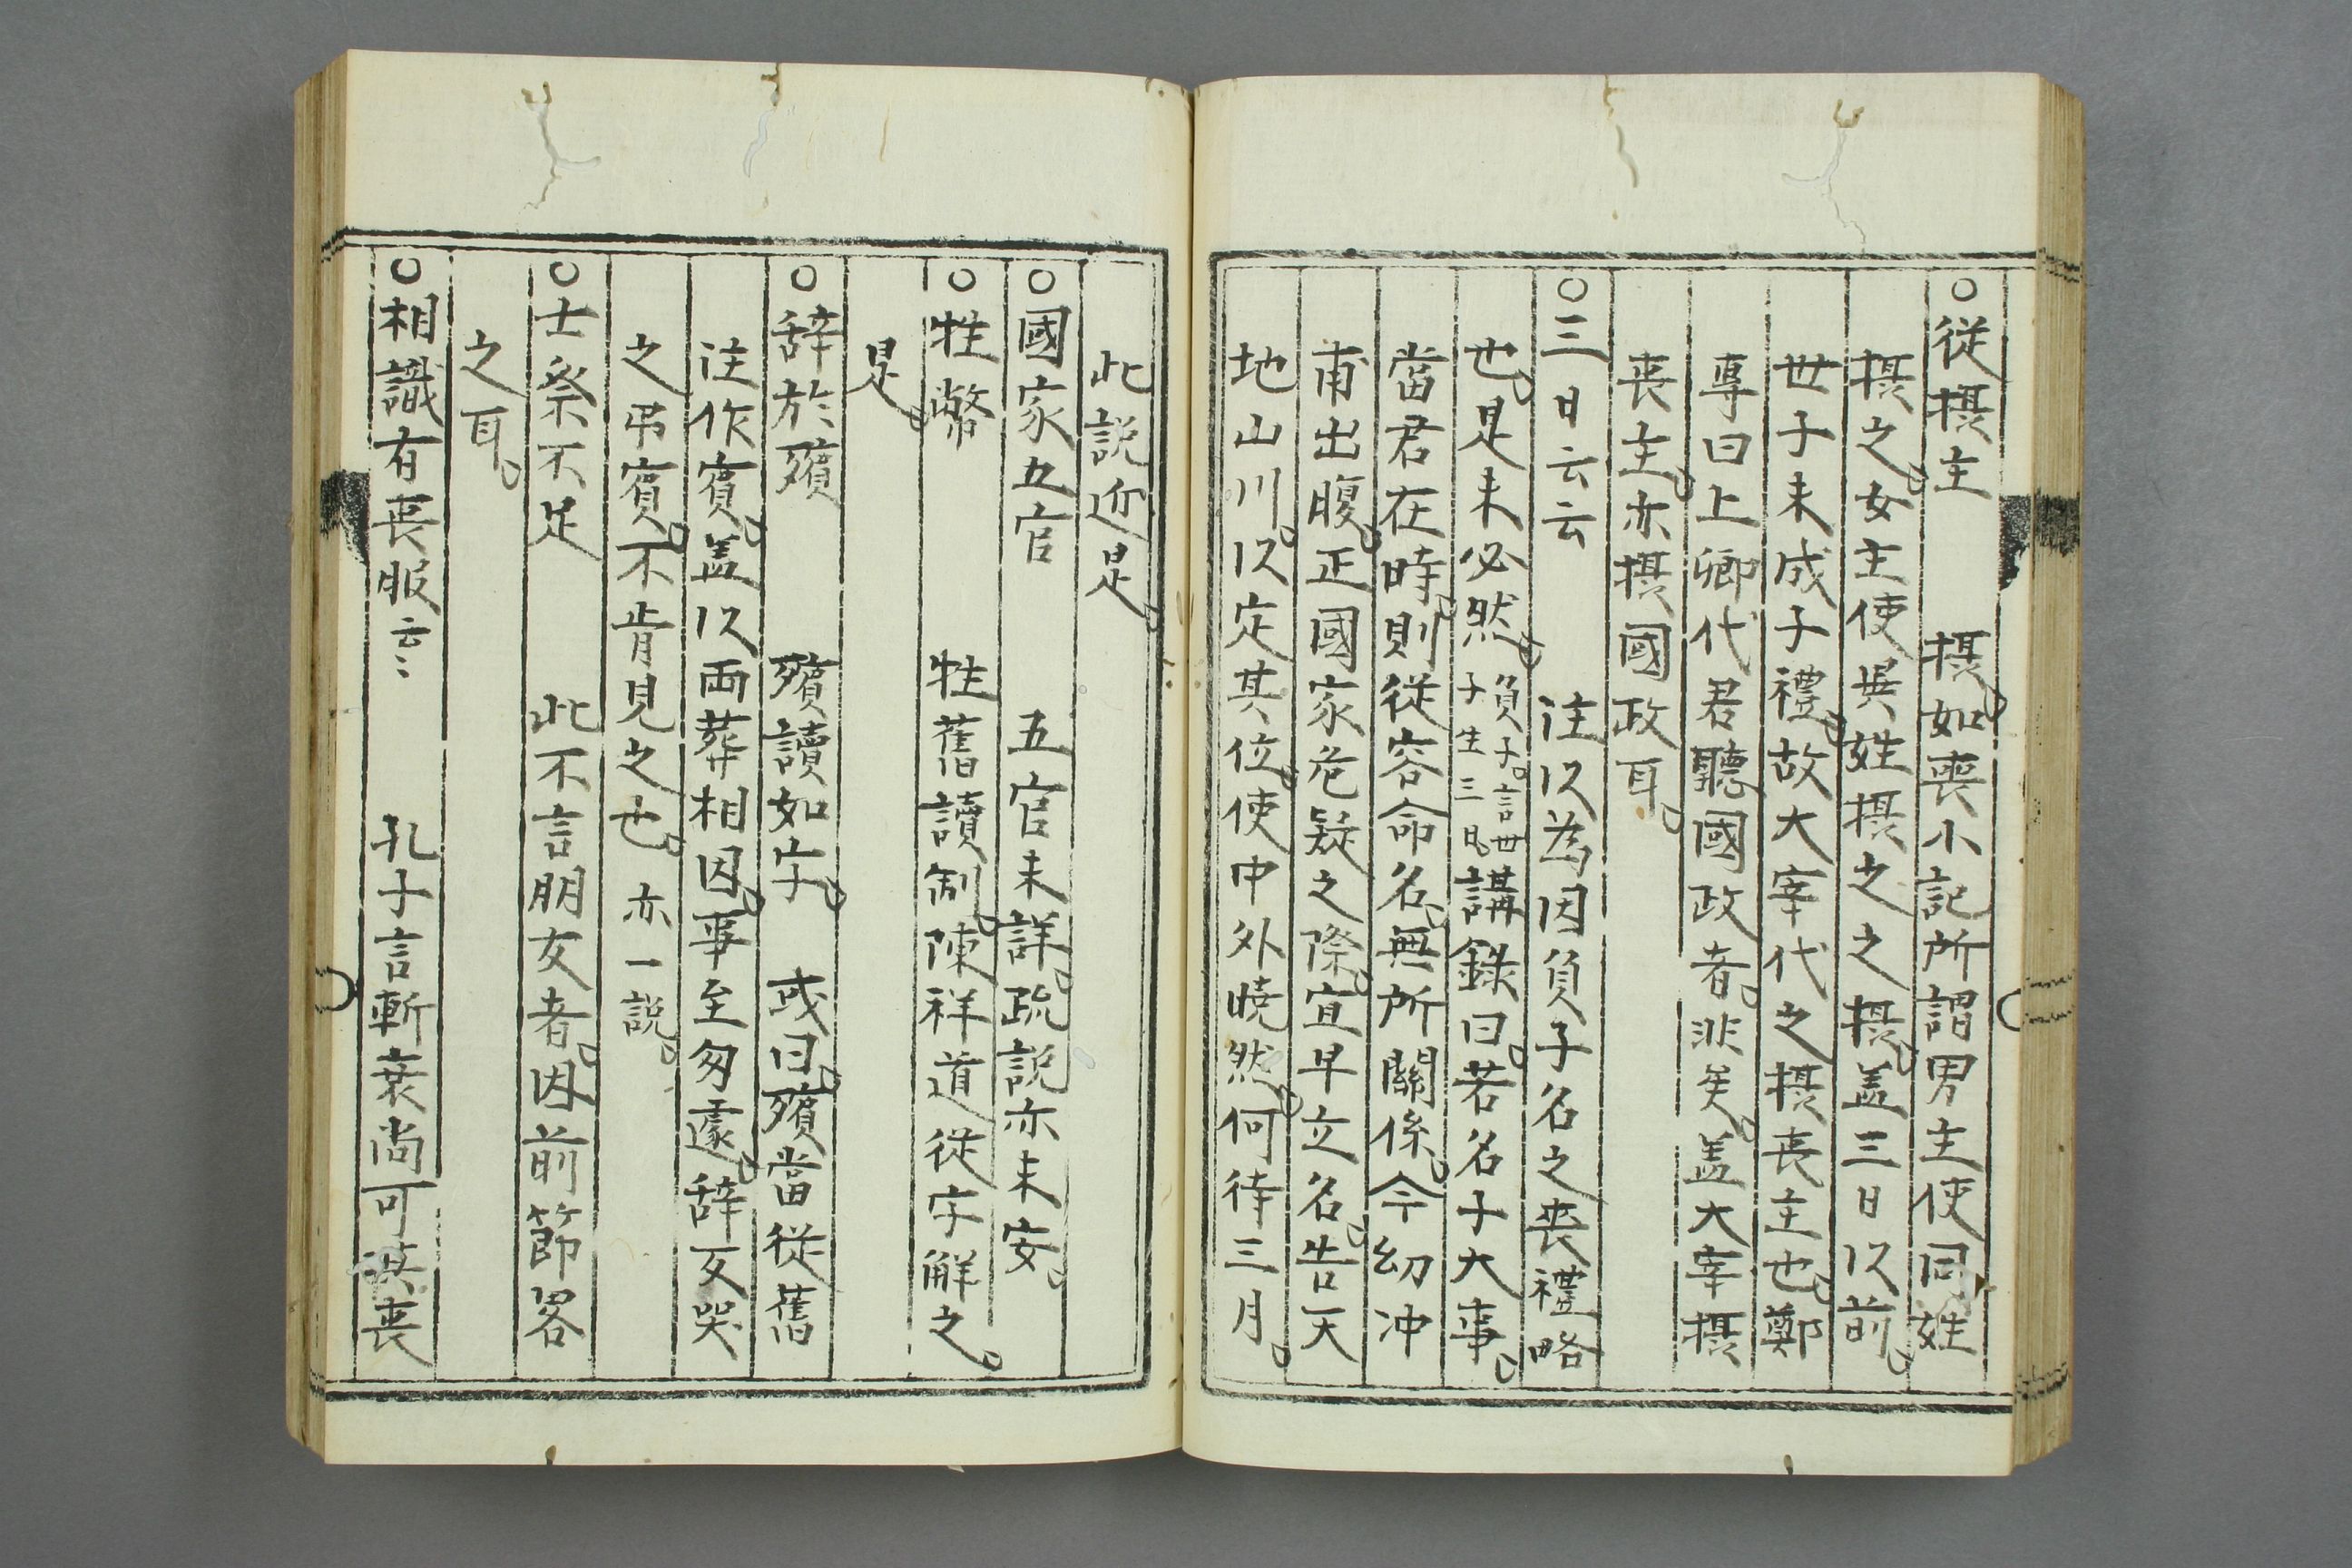 ○從摂主　摂。如喪小記所謂男主使同姓
摂之。女主使異姓摂之之摂。盖三日以前。
世子未成子禮。故大宰代之摂喪主也。鄭
專曰上卿代君聽國政者。非矣。盖大宰摂
喪主。亦摂國政耳。
○三日云云　注以為因負子名之喪禮略
也。是未必然。負子。言世子生三日。講錄曰。若名子大事。
當君在時。則從容命名。無所關係。今幼冲
甫出腹。正國家危疑之際。宜早立名。告天
地山川。以定其位。使中外暁然。何待三月。
此説近是。
○國家五官　五官未詳。疏説亦未安。
○牲幣　牲舊讀制。陳祥道從字解之。
是。
○辞於殯　殯讀如字。或曰。殯當從舊
注作賓。盖以両葬相因。事至匆遽。辞反哭
之弔賓。不肯見之也。亦一説。
○士祭不足　此不言朋友者。因前節畧
之耳。
○相識有喪服云〻　孔子言斬衰尚可從喪